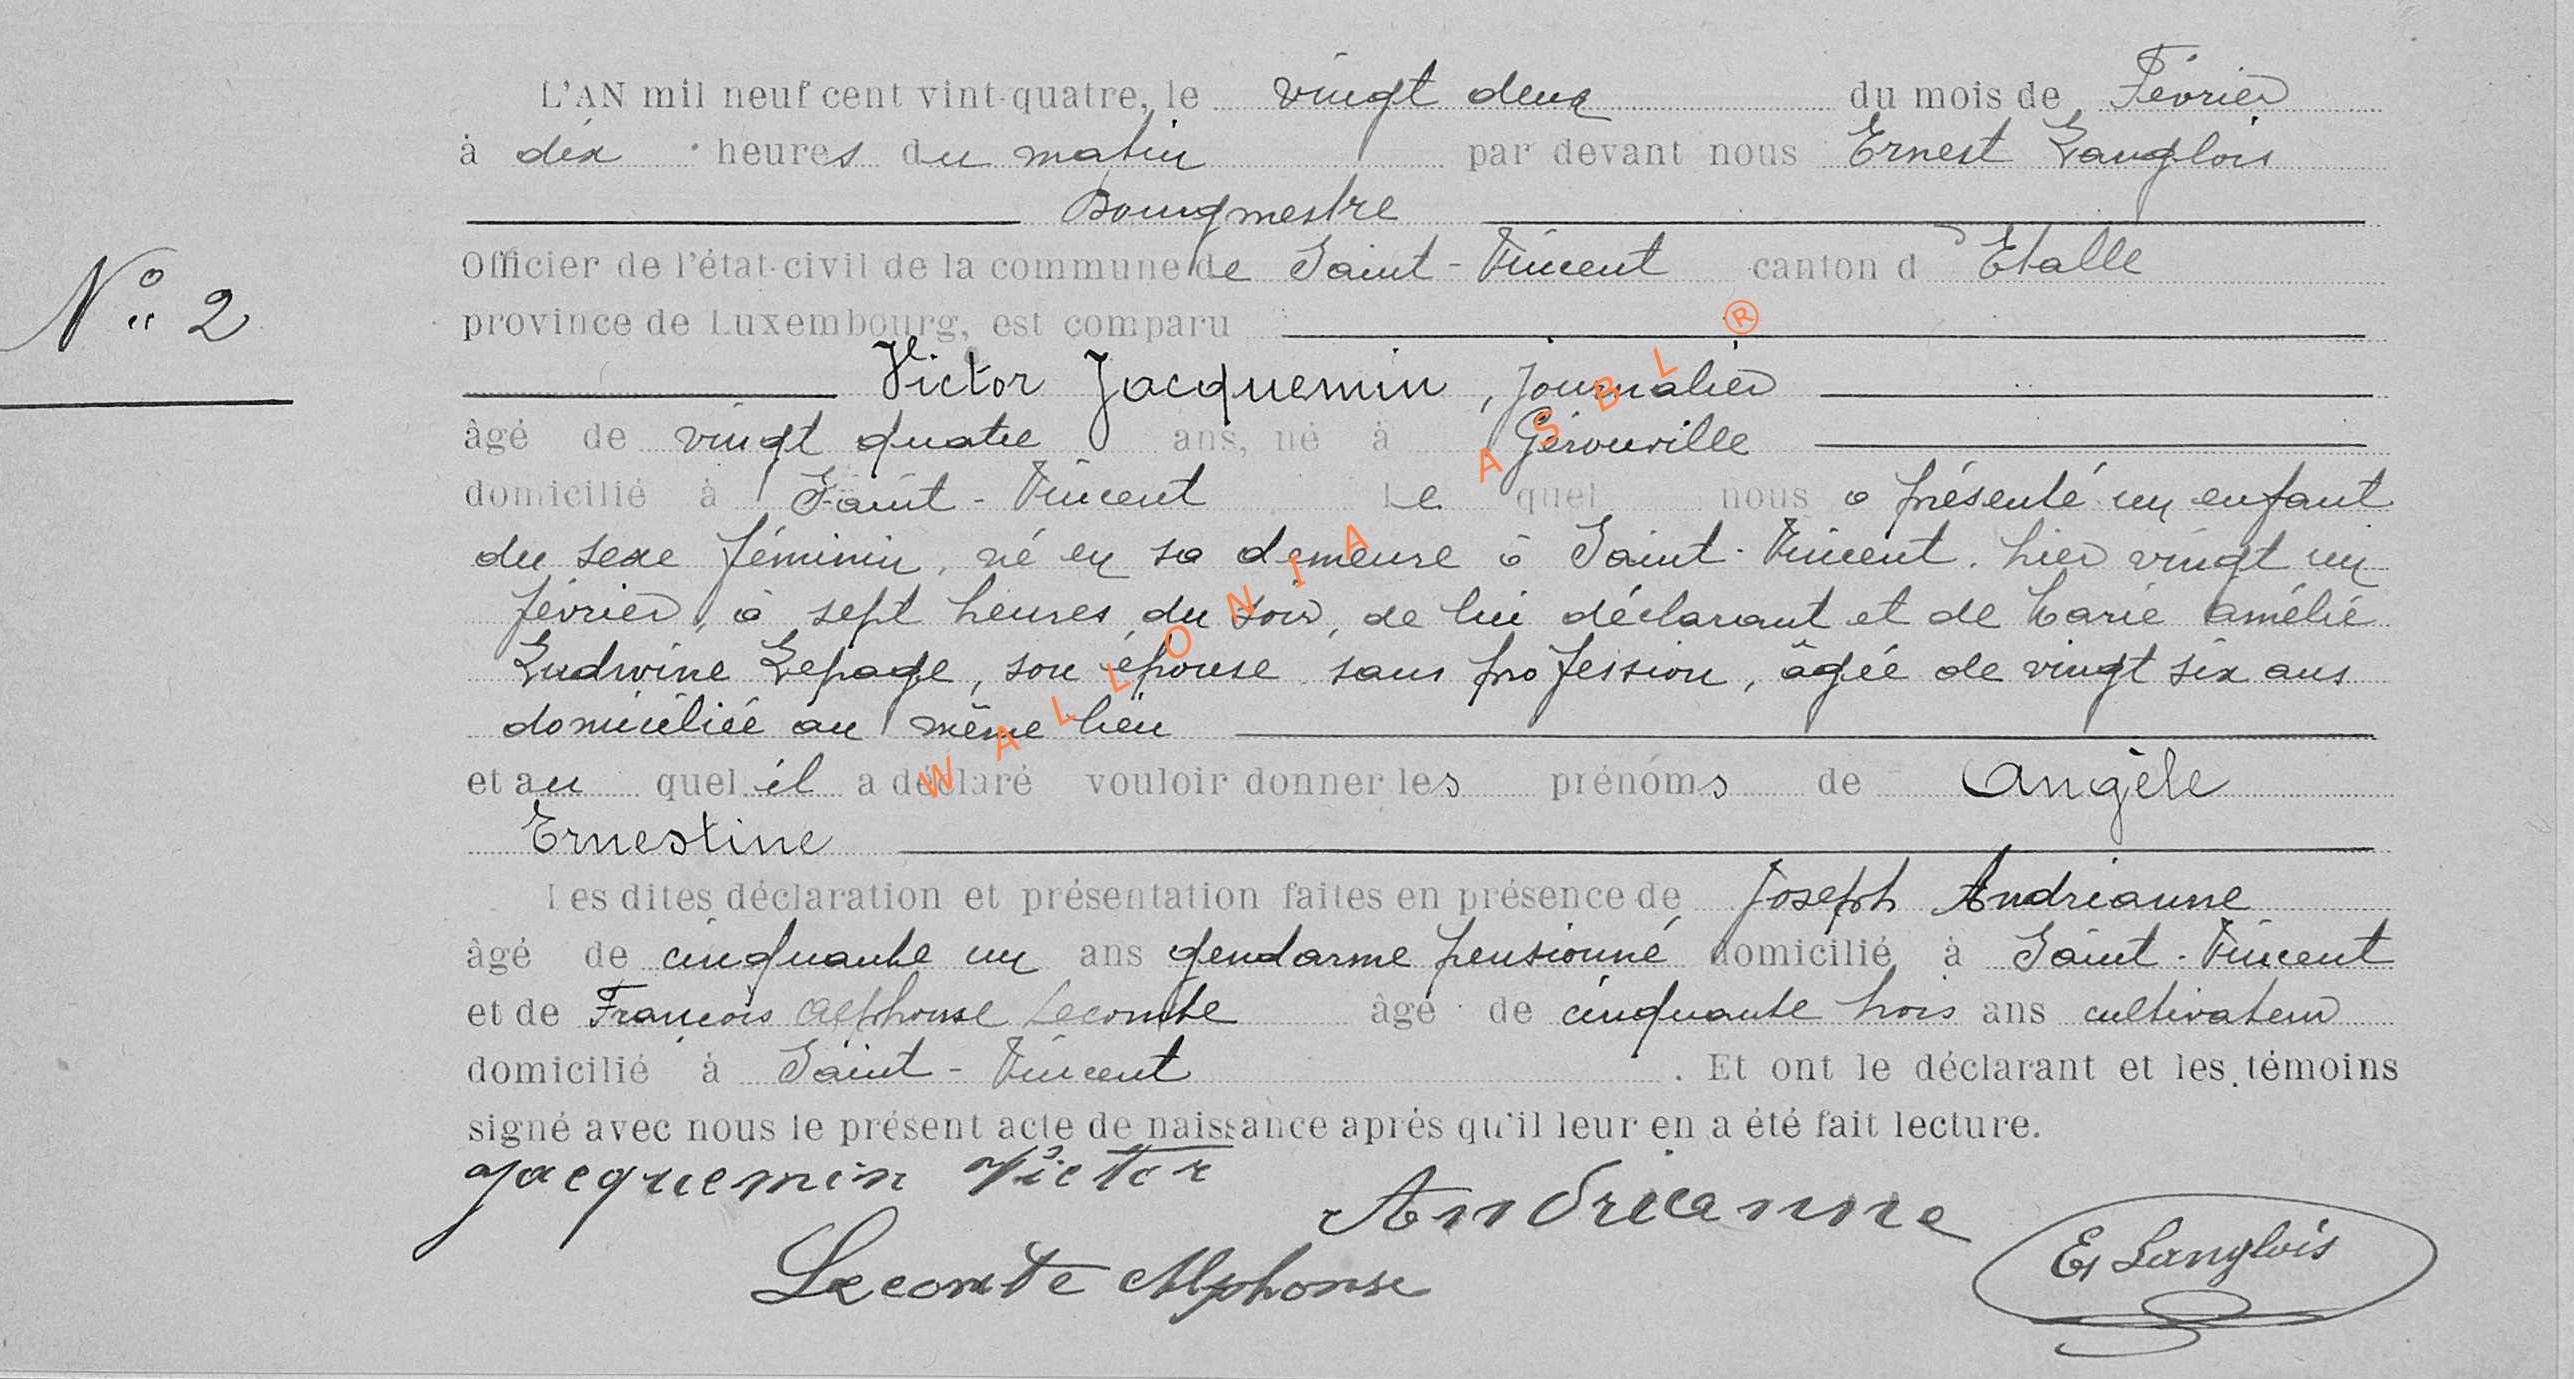 L'AN mil neuf cent vint-quatre, le vingt deux du mois de Février
à dix heures du matin par devant nous Ernest Langlois
Bourgmestre
Officier de l'état-civil de la commune de Saint-Vincent canton d'Etalle
province de Luxembourg, est comparu
N° 2
Victor Jacquemin, journalier
âgé de vingt quatre ans, né à Gérouville
domicilié à Saint-Vincent Lequel nous a présenté un enfant
du sexe féminin, né en sa demeure à Saint-Vincent. hier vingt un
février, à sept heures du soir, de lui déclarant et de Marie Amélie
Ludwine Lepage, son épouse sans profession, âgée de vingt six ans
domiciliée au même lieu
et au quel il a déclaré vouloir donner les prénoms de Angèle
Ernestine
Les dites déclaration et présentation faites en présence de Joseph Andrianne
âgé de cinquante un ans gendarme pensionné domicilié à Saint-Vincent
et de François Alphonse Lecomte âgé de cinquante trois ans cultivateur
domicilié à Saint-Vincent. Et ont le déclarant et les témoins
signé avec nous le présent acte de naissance après qu'il leur en a été fait lecture.
Jacquemin Victor
Andrianne
Lecomte Alphonse
E Langlois
WALLONIA ASBL ®